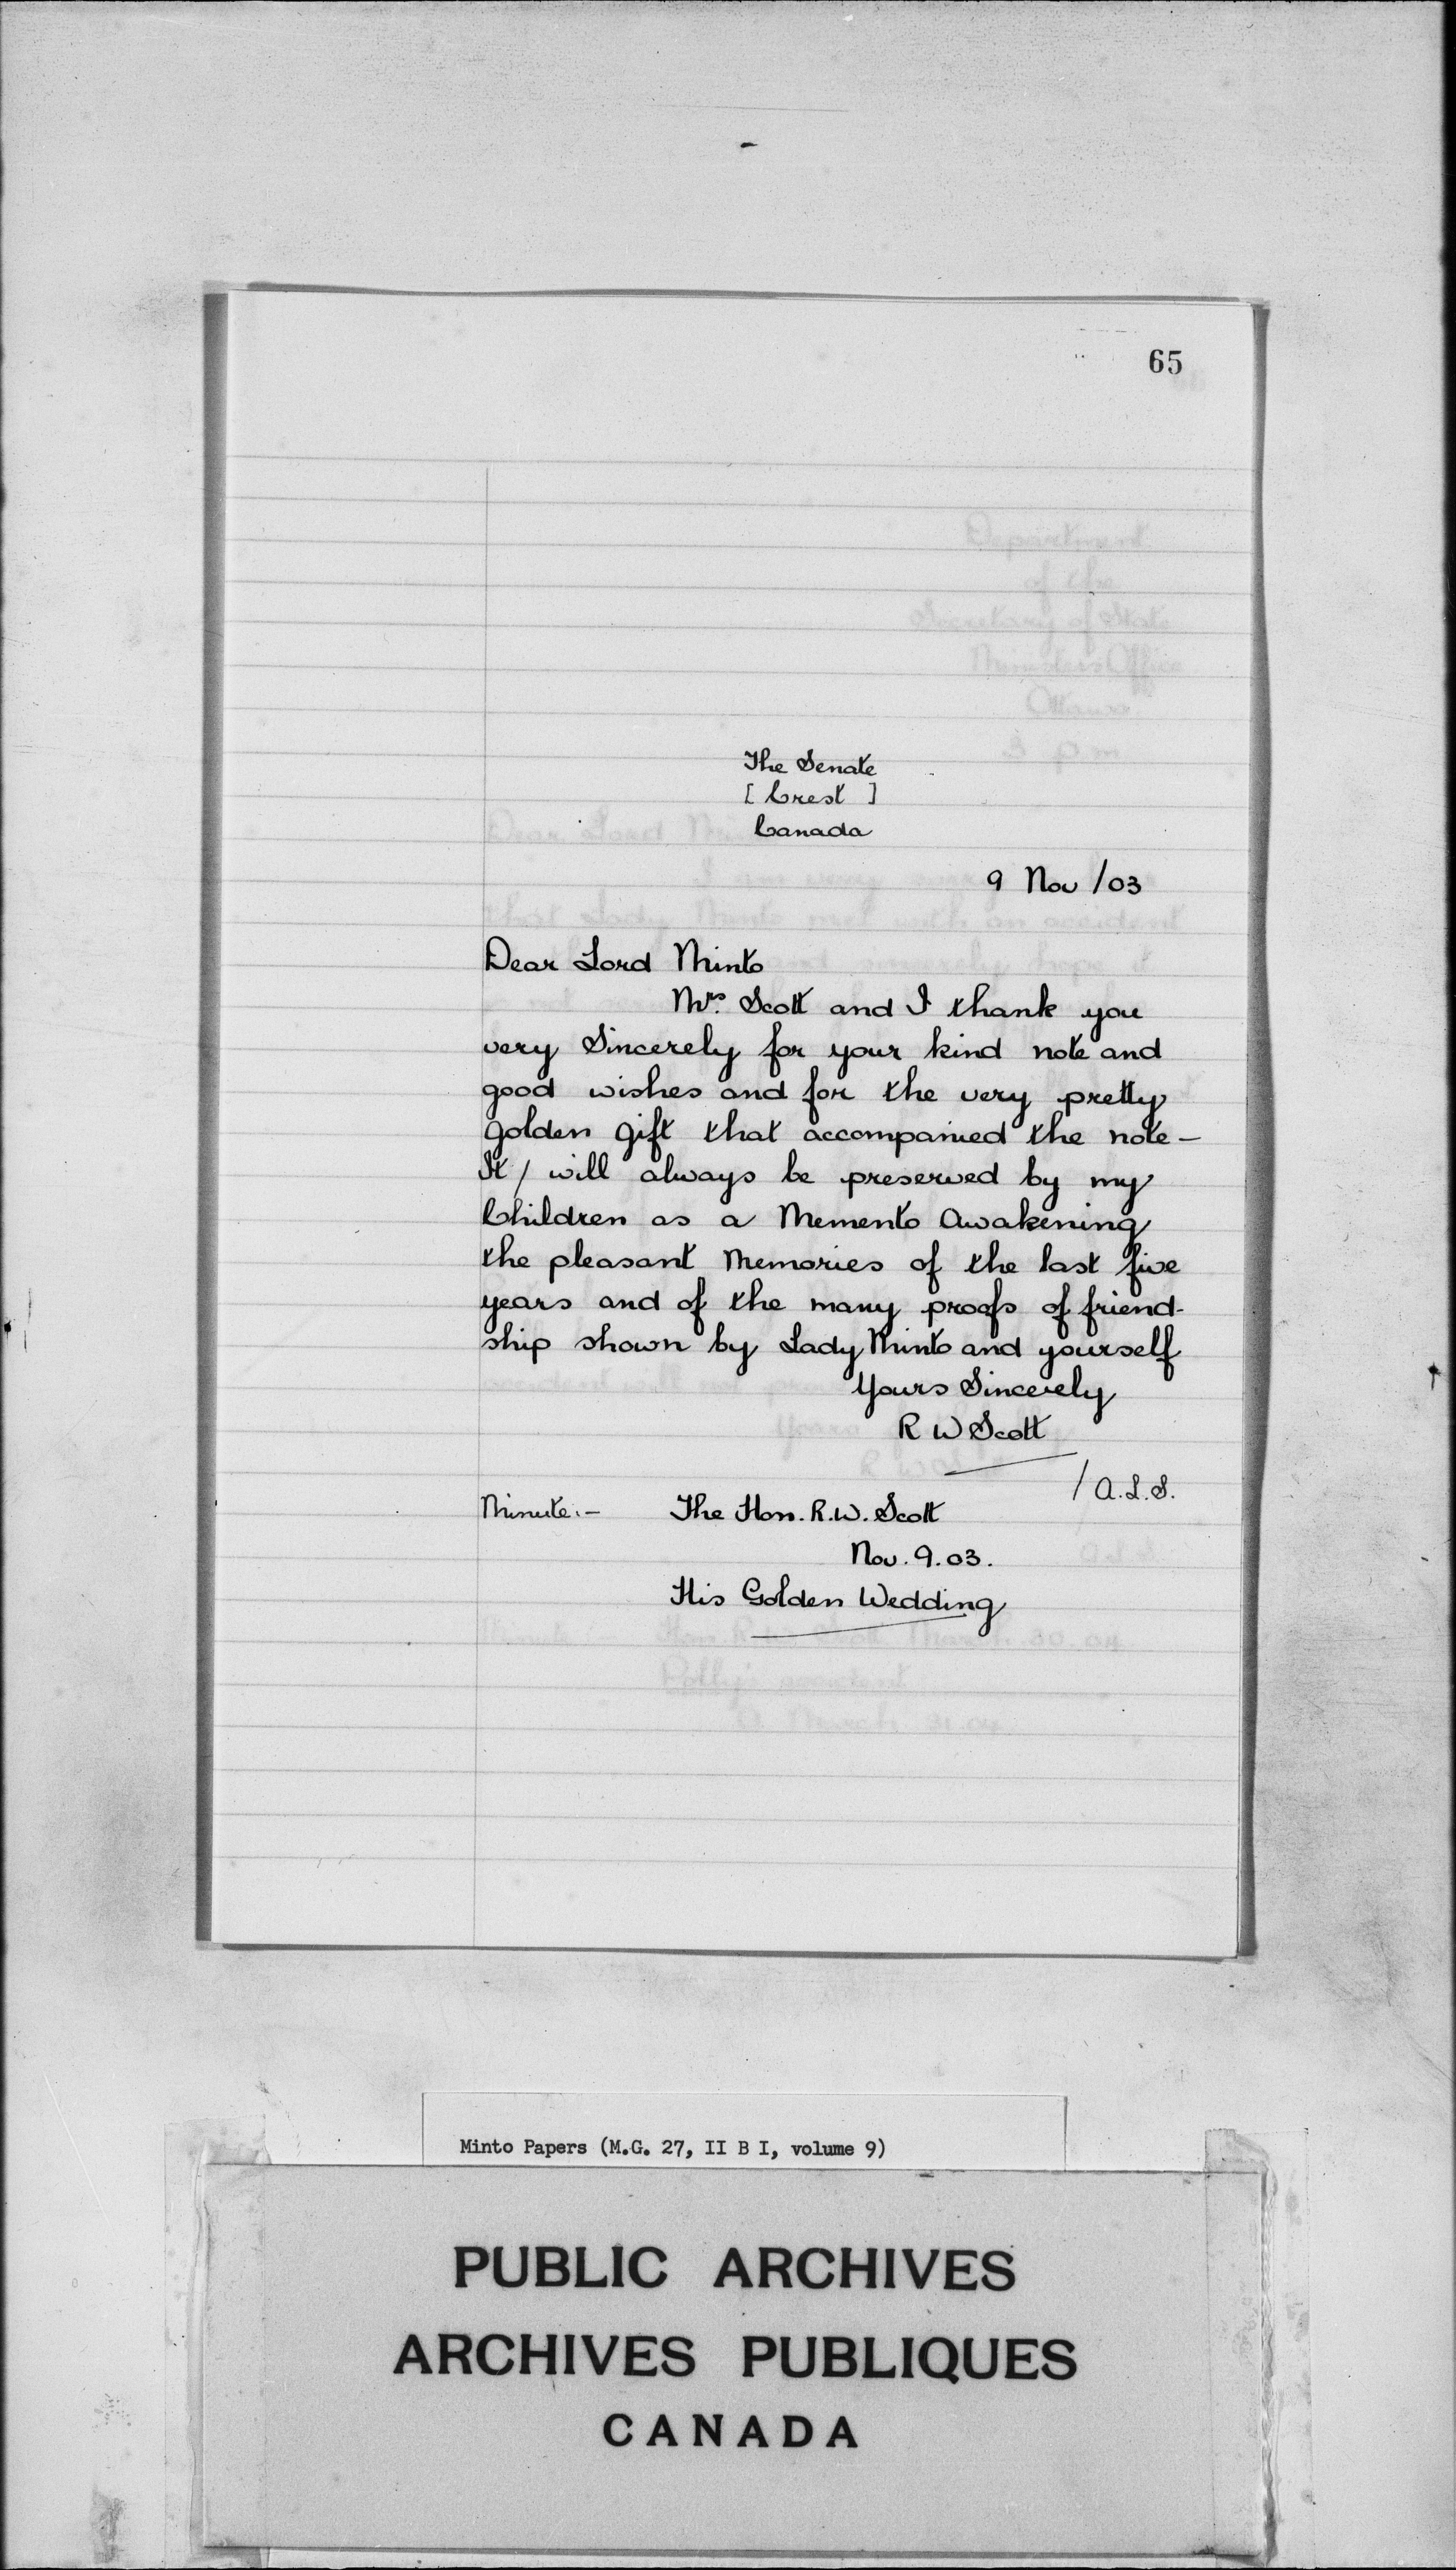 65
The Senate
[ Crest ]
Canada
9 Nov /03
Dear Lord Minto
Mrs. Scott and I thank you
very Sincerely for your kind note and
good wishes and for the very pretty
golden gift that accompanied the note –
It / will always be preserved by my
Children as a Memento Awakening
the pleasant Memories of the last five
years and of the many proofs of friend-
ship shown by Lady Minto and yourself
Yours Sincerely
R W Scott
/ A.L.S.
Minute:– The Hon. R.W. Scott
Nov. 9. 03.
His Golden Wedding
Minto Papers (M.G. 27, II B I, volume 9)
PUBLIC ARCHIVES
ARCHIVES PUBLIQUES
CANADA